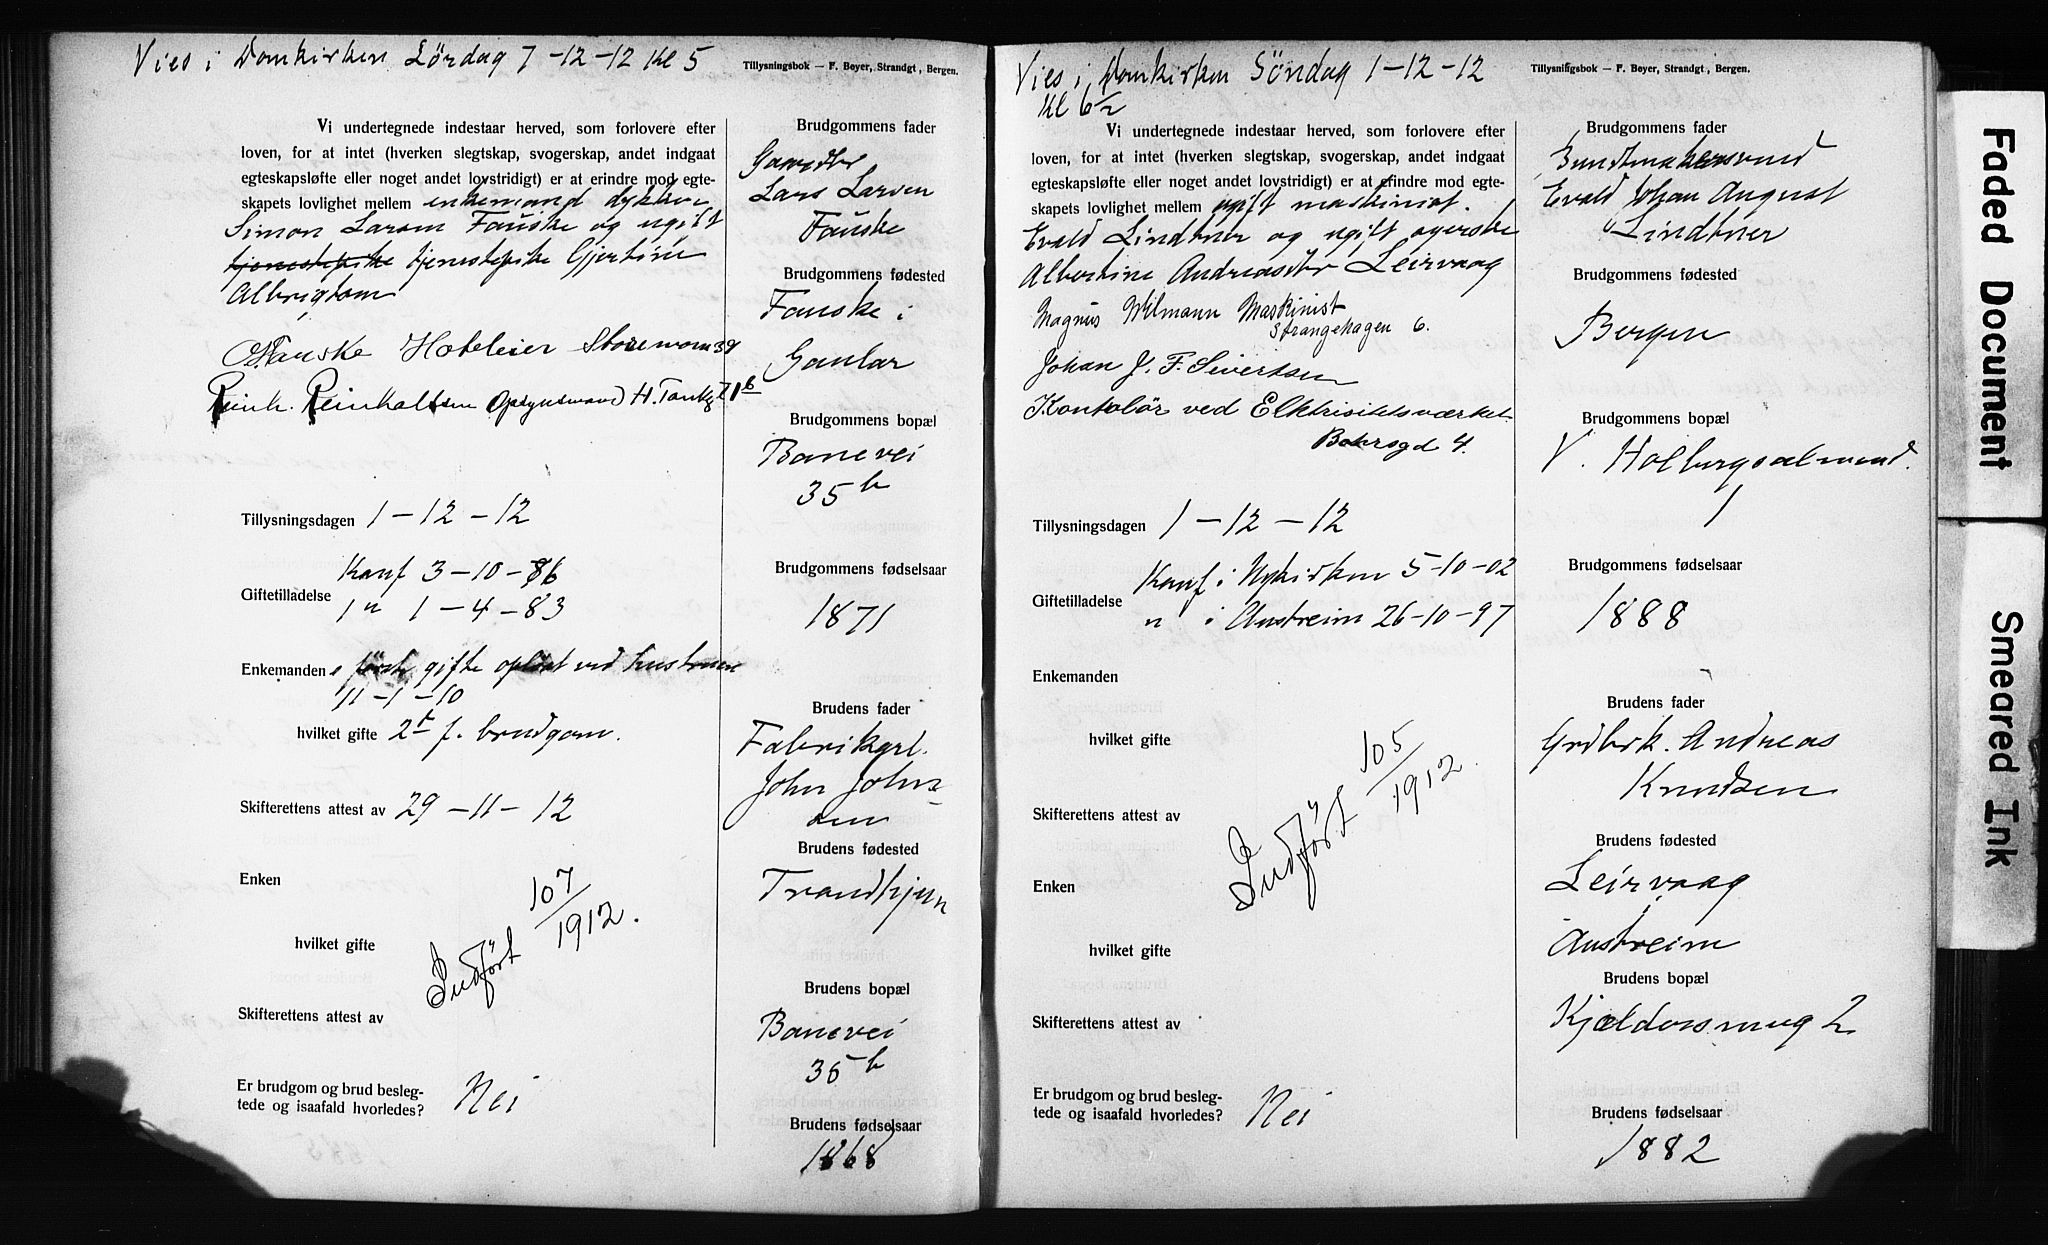 Vies i Domkirken Lördag 7-12-12 Kl 5
Tillysningsbok — F. Beyer, Strandgt, Bergen.
Vi undertegnede indestaar herved, som forlovere efter
loven, for at intet (hverken slegtskap, svogerskap, andet indgaat
egteskapsløfte eller noget andet lovstridigt) er at erindre mod egte-
skapets lovlighet mellem enkemand dykker
Simon Larsen Fauske og ugift
tjenestepike tjenestepike Gjertine
Albrigtsen
Fauske Hoteleier 39
Reinh. Reinholtsen Opsynsmand H. Tankg 71 b
Tillysningsdagen 1-12-12
Konf 3-10-86
Giftetilladelse
1 " 1-4-83
Enkemanden s første gifte opløst ved hustruen
11-1-10
hvilket gifte 2t f. brudgom.
Skifterettens attest av 29-11-12
Enken
hvilket gifte
Indført 107/1912.
Skifterettens attest av
Er brudgom og brud besleg-
tede og isaafald hvorledes? Nei
Brudgommens fader
Gaardbr
Lars Larsen
Fauske
Brudgommens fødested
Fauske i
Gaular
Brudgommens bopæl
Banevei
35 b
Brudgommens fødselsaar
1871
Brudens fader
Fabrikarb.
John Johns
sen
Brudens fødested
Trondhjem
Brudens bopæl
Banevei
35 b
Brudens fødselsaar
1868
Vies i Domkirken Söndag 1-12-12
Kl 6½
Tillysningsbok — F. Beyer, Strandgt, Bergen.
Vi undertegnede indestaar herved, som forlovere efter
loven, for at intet (hverken slegtskap, svogerskap, andet indgaat
egteskapsløfte eller noget andet lovstridigt) er at erindre mod egte-
skapets lovlighet mellem ugift maskinist.
Evald Lindtner og ugift syerske
Albertine Andreasdtr Leirvaag
Magnus Wilmann Maskinist
Strangehagen 6.
Johan J. F. Sivertsen
Kontolör ved Elktrisitetsværket
4.
Tillysningsdagen 1-12-12
Konf i Nykirken 5-10-02
Giftetilladelse
" i Austreim 26-10-97
Enkemanden
hvilket gifte
Skifterettens attest av
Indført 105/1912.
Enken
hvilket gifte
Skifterettens attest av
Er brudgom og brud besleg-
tede og isaafald hvorledes? Nei
Brudgommens fader
Bundtmakersvend
Evald Johan August
Lindtner
Brudgommens fødested
Bergen
Brudgommens bopæl
V. Holbergsalmend.
1
Brudgommens fødselsaar
1888
Brudens fader
Grdbrk. Andreas
Knudsen
Brudens fødested
Leirvaag
Austreim
Brudens bopæl
Kjældersmug 2
Brudens fødselsaar
1882
Faded Document
Smeared Ink